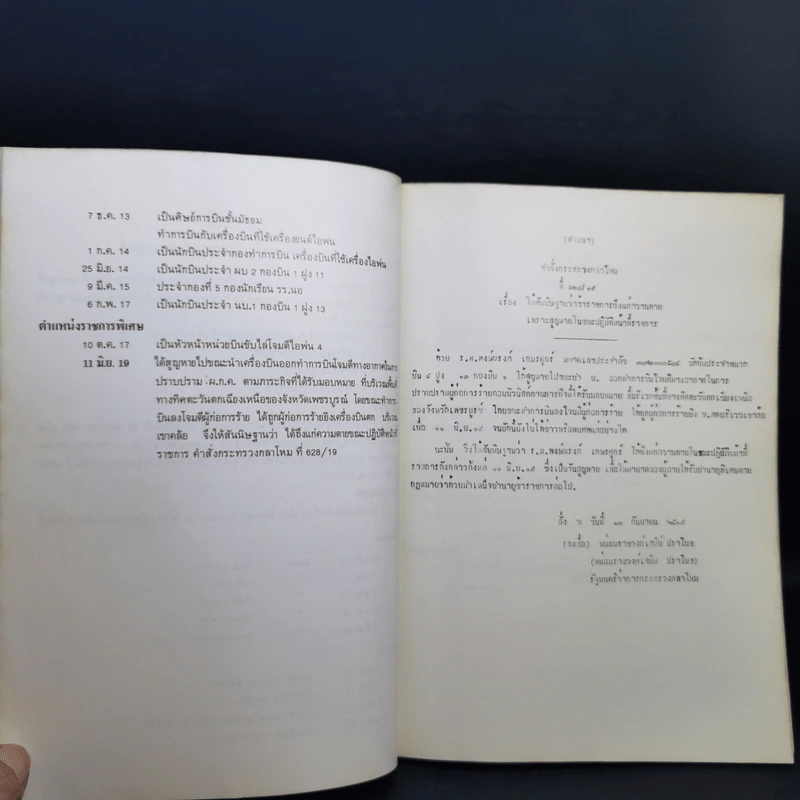 7 ธ.ค. 13 เป็นศิษย์การบินชั้นมัธยม
ทำการบินกับเครื่องบินที่ใช้เครื่องยนต์ไอพ่น
1 ก.ค. 14 เป็นนักบินประจำกองทำการบิน เครื่องบินที่ใช้เครื่องไอพ่น
25 มิ.ย. 14 เป็นนักบินประจำ ผบ 2 กองบิน 1 ฝูง 11
9 มี.ค. 15 ประจำกองที่ 5 กองนักเรียน รร.นอ
6 ก.พ. 17 เป็นนักบินประจำ นบ.1 กองบิน 1 ฝูง 13
ตำแหน่งราชการพิเศษ
10 ต.ค. 17 เป็นหัวหน้าหน่วยบินขับไล่โจมตีไอพ่น 4
11 มิ.ย. 19 ได้สูญหายไปขณะนำเครื่องบินออกทำการบินโจมตีทางอากาศในการ
ปราบปราม ผ.ก.ค. ตามภาระกิจที่ได้รับมอบหมาย ที่บริเวณพื้นที่
ทางทิศตะวันตกเฉียงเหนือของจังหวัดเพชรบูรณ์ โดยขณะทำการ
บินลงโจมตีผู้ก่อการร้าย ได้ถูกผู้ก่อการร้ายยิงเครื่องบินตก บริเวณ
เขาค้อ จึงให้สันนิษฐานว่า ได้ถึงแก่ความตายขณะปฏิบัติหน้าที่
ราชการ คำสั่งกระทรวงกลาโหม ที่ 628/19
(สำเนา)
คำสั่งกระทรวงกลาโหม
ที่ ๖๒๘/๑๙
เรื่อง ให้สันนิษฐานว่าข้าราชการถึงแก่ความตาย
เพราะสูญหายในขณะปฏิบัติหน้าที่ราชการ
ด้วย ร.อ.พงษ์ณรงค์ เกษรศุกร์ หมายเลขประจำตัว นักบินประจำหมวด
บิน ๔ ฝูง ๑๓ กองบิน ๑ ได้สูญหายไปขณะนำ บ. ออกทำการบินโจมตีทางอากาศในการ
ปราบปรามผู้ก่อการร้ายคอมมิวนิสต์ตามภารกิจที่ได้รับมอบหมาย ที่บริเวณพื้นที่ทางทิศตะวันตกเฉียงเหนือ
ของจังหวัดเพชรบูรณ์ โดยขณะทำการบินลงโจมตีผู้ก่อการร้าย ได้ถูกผู้ก่อการร้ายยิง บ.ตกบริเวณเขาค้อ
เมื่อ ๑๑ มิ.ย.๑๙ จนบัดนี้ยังไม่ได้ข่าวหรือพบศพแต่อย่างใด
ฉะนั้น จึงให้สันนิษฐานว่า ร.อ.พงษ์ณรงค์ เกษรศุกร์ ได้ถึงแก่ความตายในขณะปฏิบัติหน้าที่
ราชการดังกล่าวตั้งแต่ ๑๑ มิ.ย.๑๙ ซึ่งเป็นวันสูญหาย เพื่อให้ทายาทของผู้ตายได้รับบำนาญพิเศษตาม
กฎหมายว่าด้วยบำเหน็จบำนาญข้าราชการต่อไป
สั่ง ณ วันที่ ๑๓ กันยายน ๒๕๑๙
(ลงชื่อ) หม่อมราชวงศ์เสนีย์ ปราโมช
(หม่อมราชวงศ์เสนีย์ ปราโมช)
รัฐมนตรีว่าการกระทรวงกลาโหม